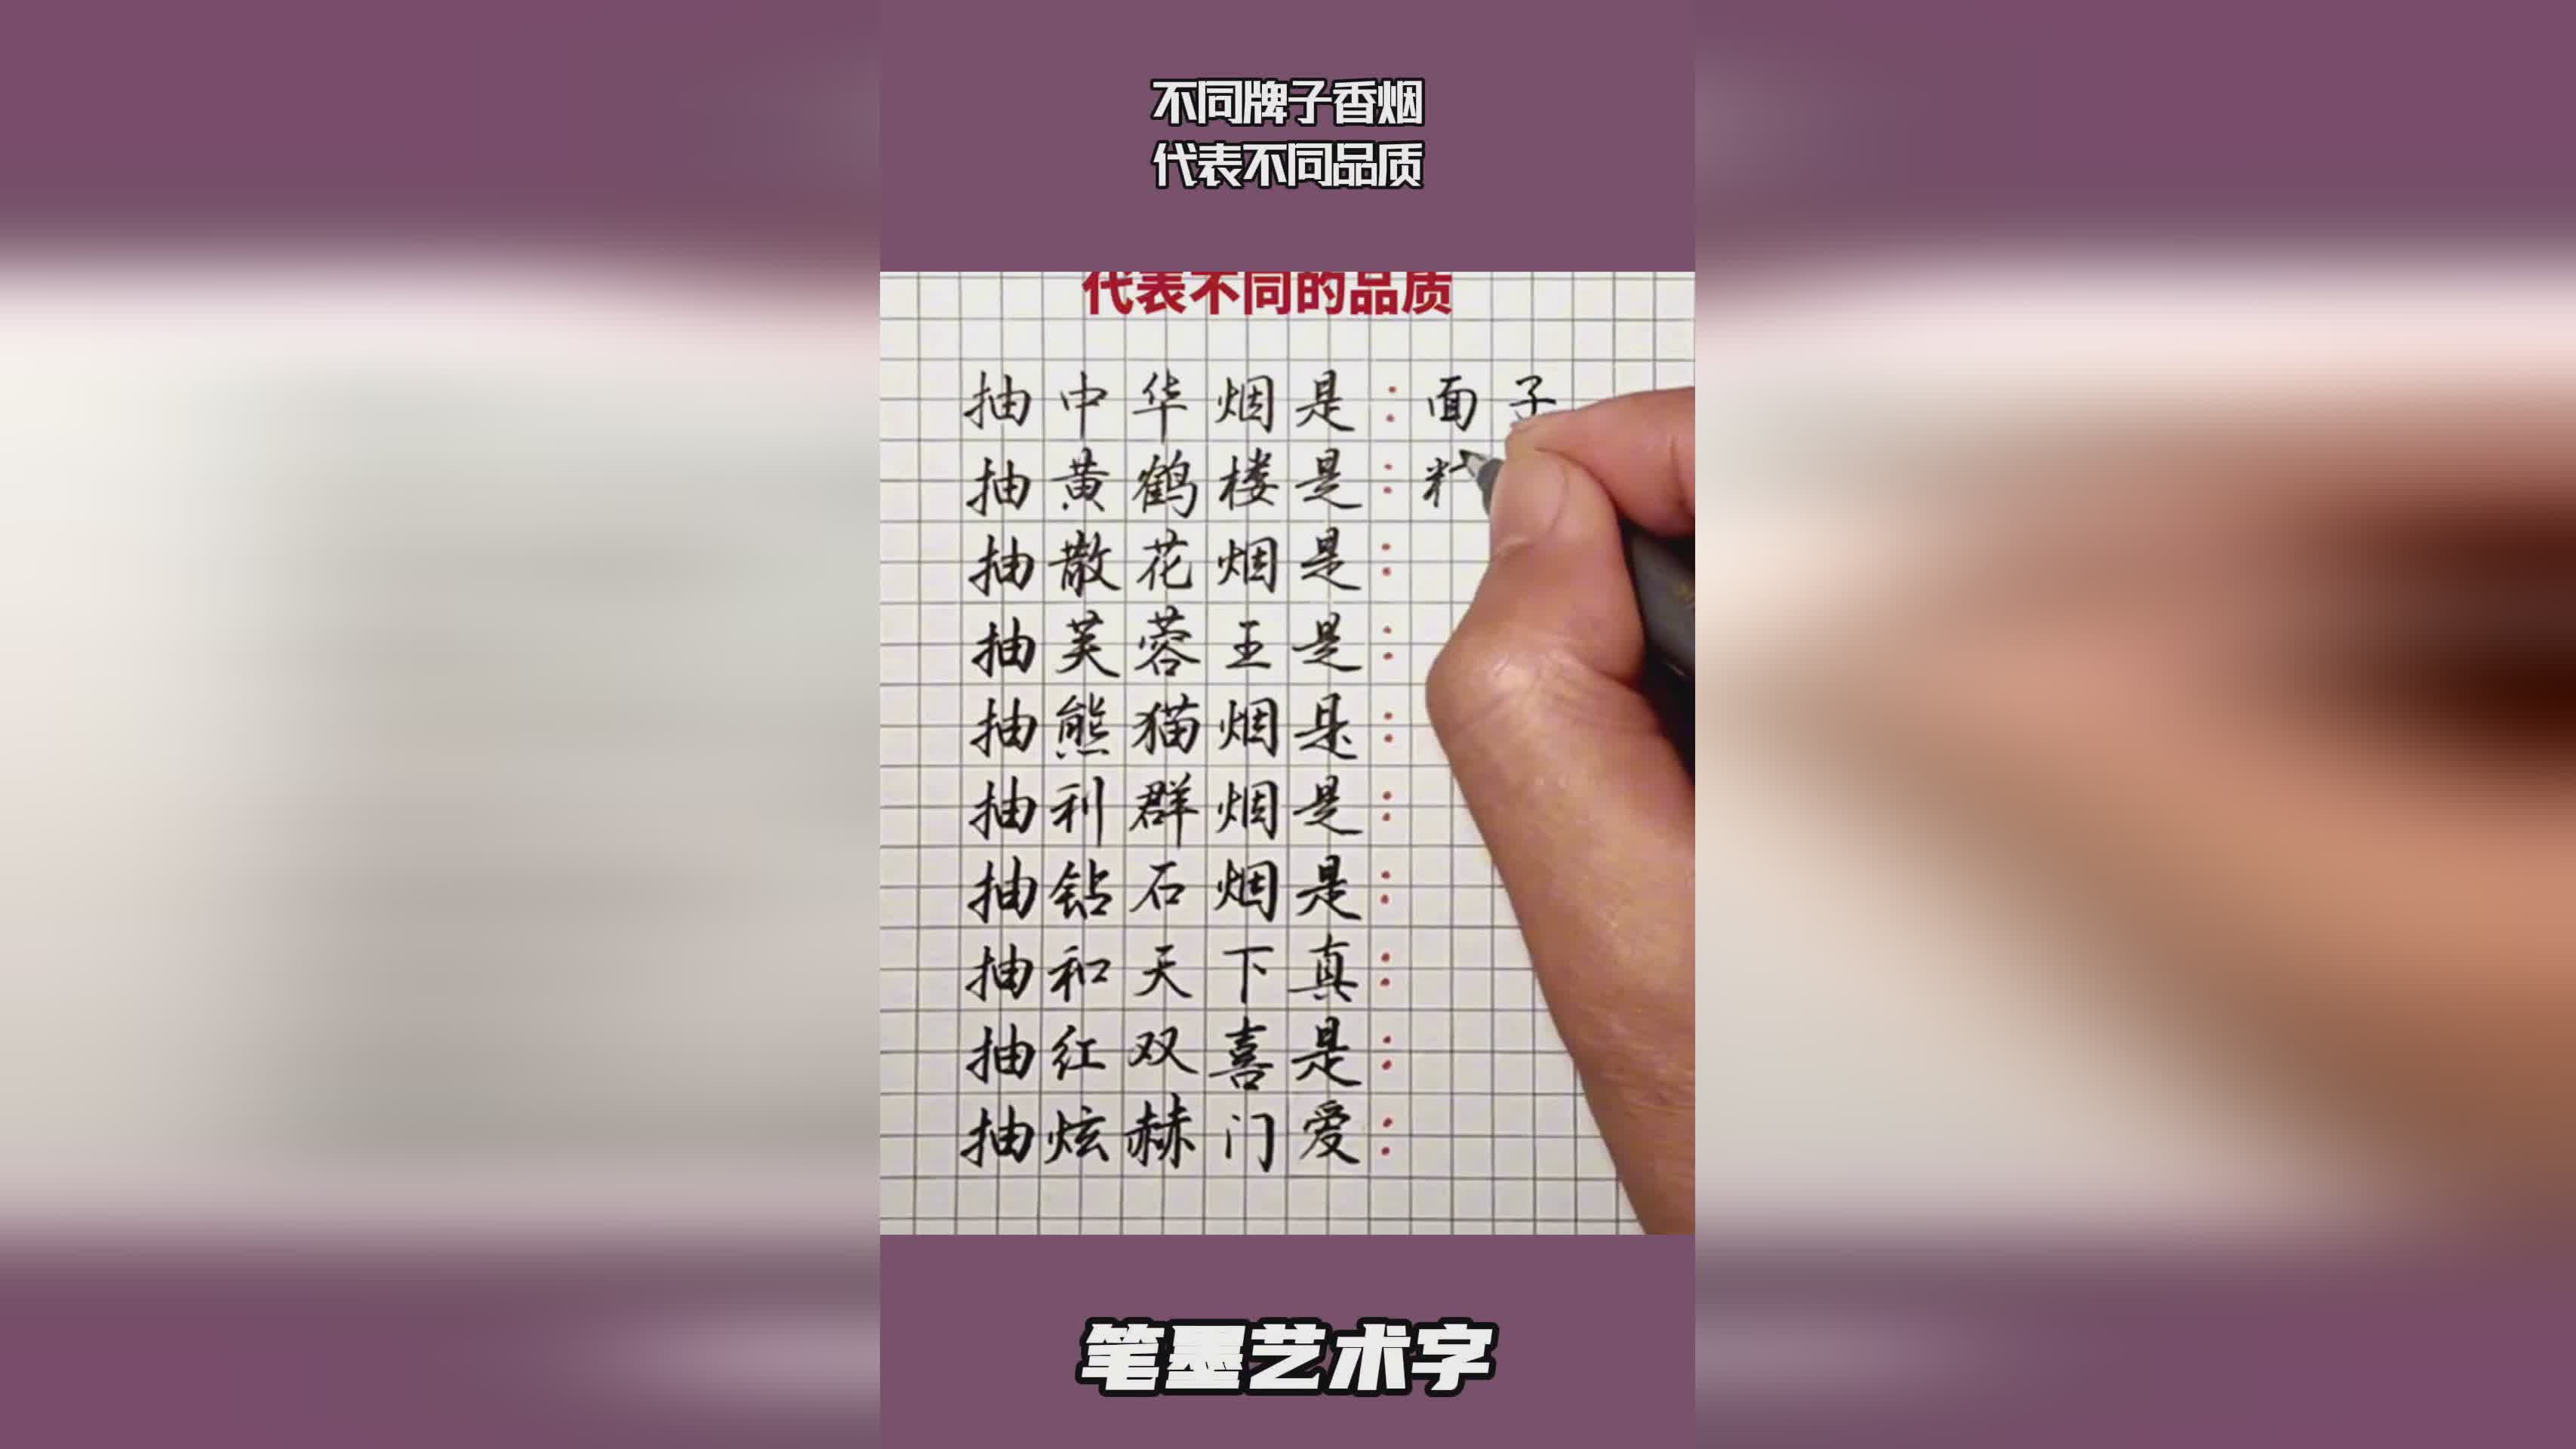 不同牌子香烟
代表不同品质
代表不同的品质
抽中华烟是：面子
抽黄鹤楼是：
抽散花烟是：
抽芙蓉王是：
抽熊猫烟是：
抽利群烟是：
抽钻石烟是：
抽和天下真：
抽红双喜是：
抽炫赫门爱：
笔墨艺术字